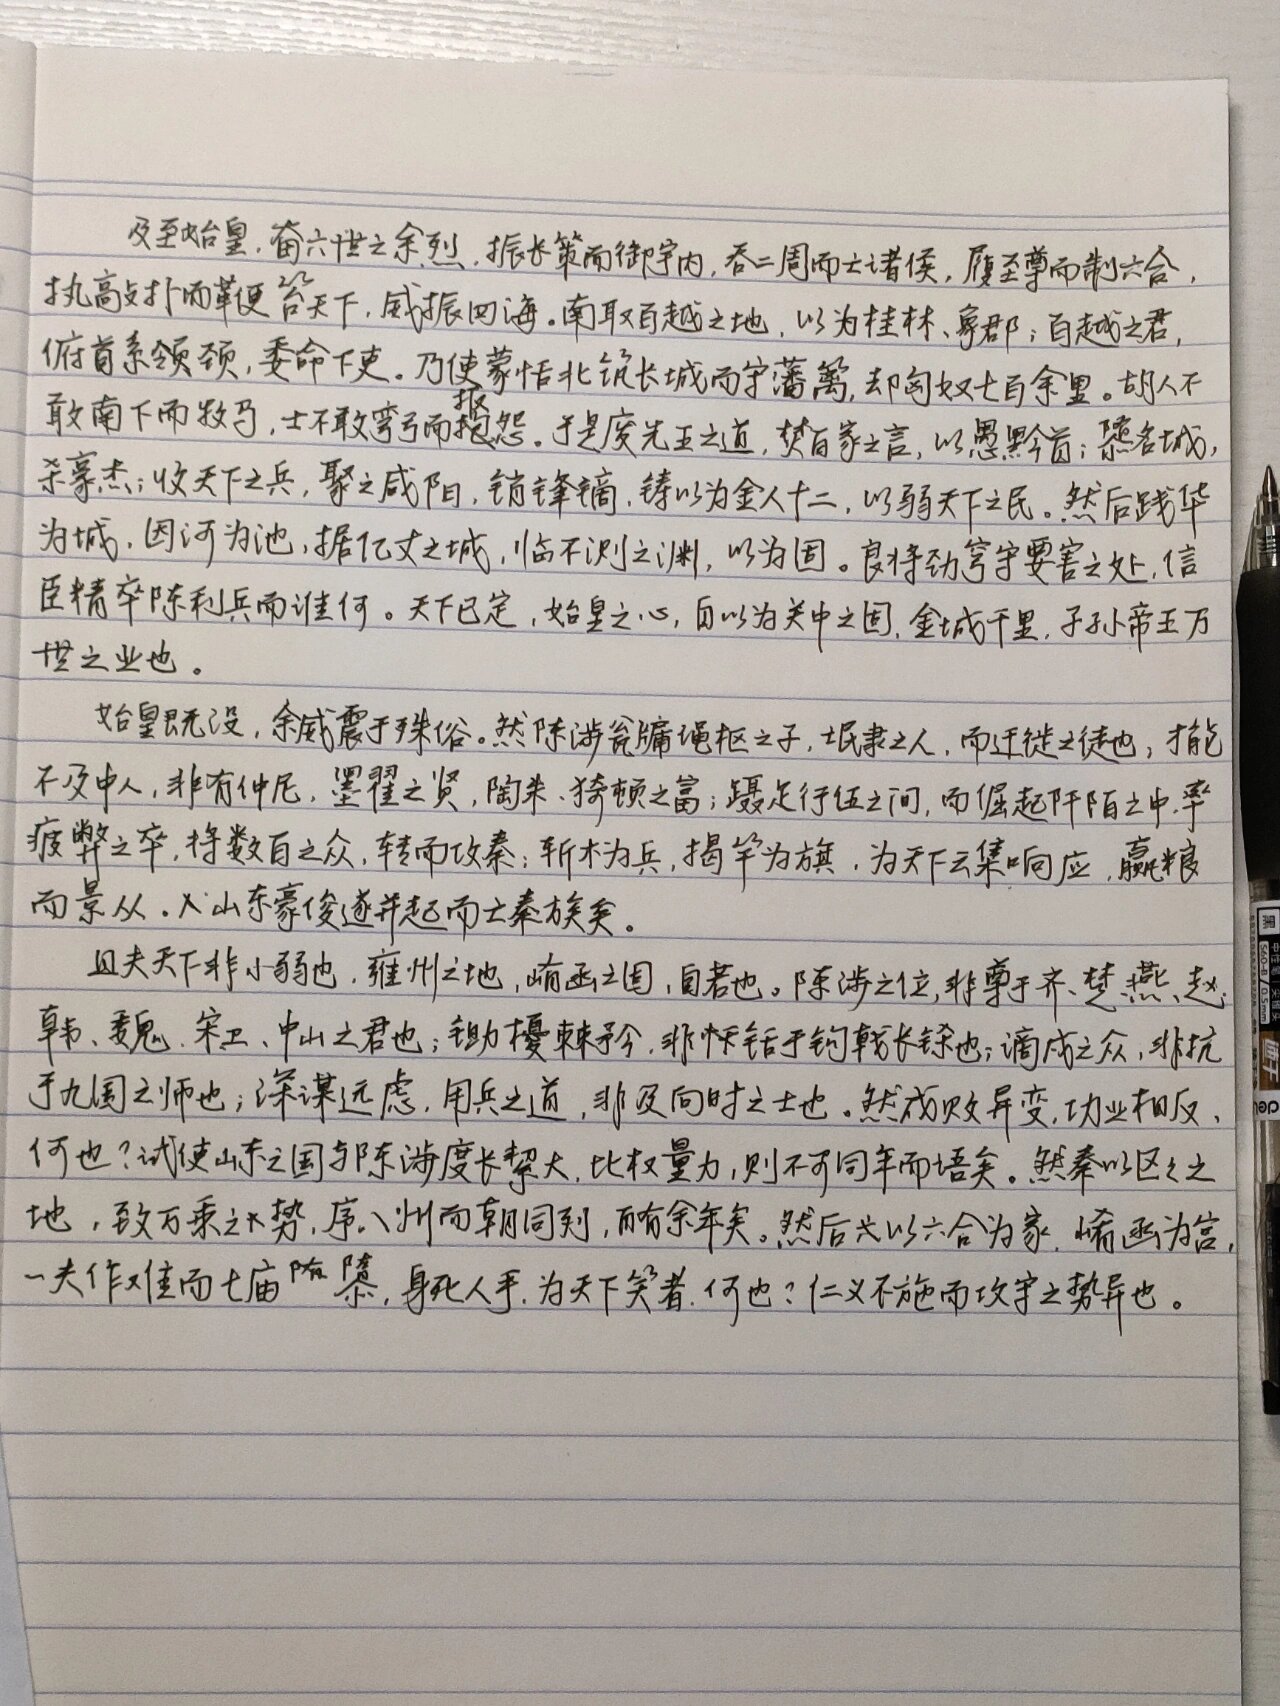 及至始皇，奋六世之余烈，振长策而御宇内，吞二周而亡诸侯，履至尊而制六合，
执高攴扑而鞭笞天下，威振四海。南取百越之地，以为桂林、象郡；百越之君，
俯首系领颈，委命下吏。乃使蒙恬北筑长城而守藩篱，却匈奴七百余里。胡人不
敢南下而牧马，士不敢弯弓而报怨。于是废先王之道，焚百家之言，以愚黔首；隳名城，
杀豪杰；收天下之兵，聚之咸阳，销锋镝，铸以为金人十二，以弱天下之民。然后践华
为城，因河为池，据亿丈之城，临不测之渊，以为固。良将劲弩守要害之处，信
臣精卒陈利兵而谁何。天下已定，始皇之心，自以为关中之固，金城千里，子孙帝王万
世之业也。
始皇既没，余威震于殊俗。然陈涉瓮牖绳枢之子，氓隶之人，而迁徙之徒也；才能
不及中人，非有仲尼，墨翟之贤，陶朱、猗顿之富；蹑足行伍之间，而倔起阡陌之中，率
疲弊之卒，将数百之众，转而攻秦；斩木为兵，揭竿为旗，为天下云集响应，赢粮
而景从。山东豪俊遂并起而亡秦族矣。
且夫天下非小弱也，雍州之地，崤函之固，自若也。陈涉之位，非尊于齐、楚、燕、赵、
韩、魏、宋卫、中山之君也；锄櫌棘矜，非铦于钩戟长铩也；谪戍之众，非抗
于九国之师也；深谋远虑，用兵之道，非及向时之士也。然成败异变，功业相反，
何也？试使山东之国与陈涉度长絜大，比权量力，则不可同年而语矣。然秦以区々之
地，致万乘之势，序八州而朝同列，百有余年矣。然后以六合为家，崤函为宫，
一夫作难而七庙隳，身死人手，为天下笑者，何也？仁义不施而攻守之势异也。
黑
S60-B/0.5mm